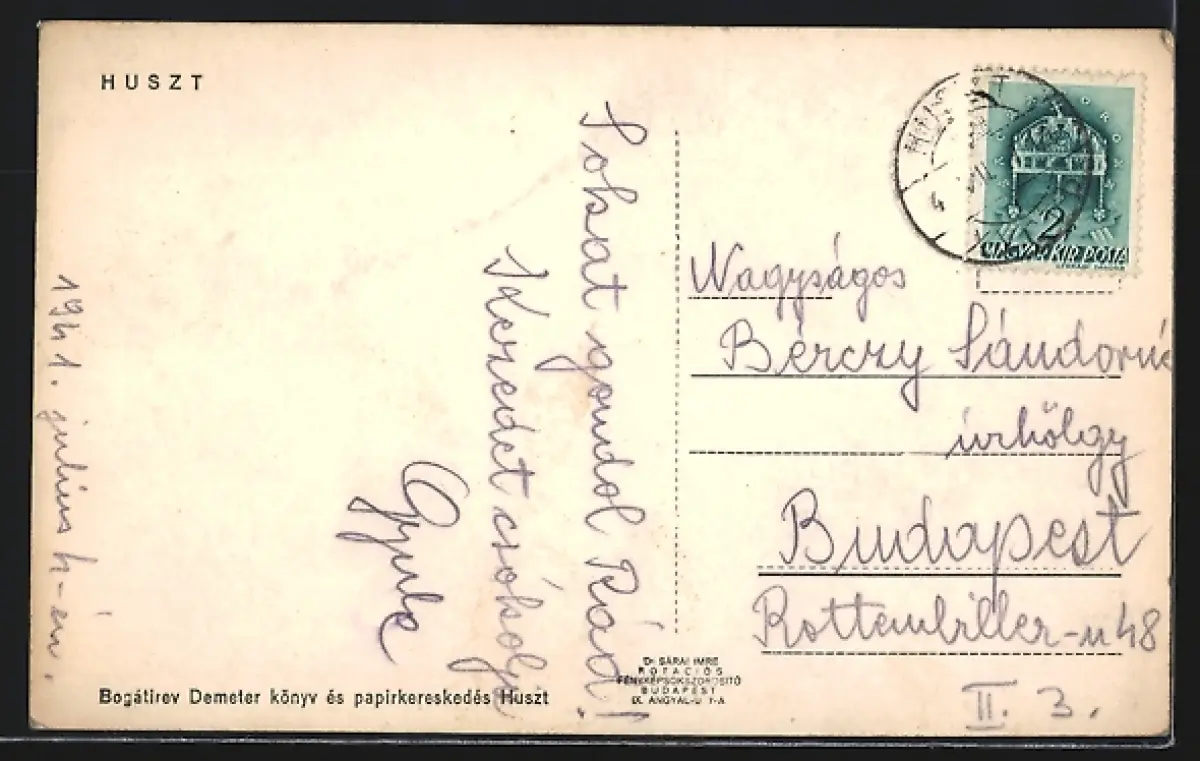 HUSZT
Sokat gondol Rád!
Kezedet csókolja
Gyula
1941. július 4-én.
Nagyságos
Bérczy Sándorné
úrhölgy
Budapest
Rottenbiller-u 48
II. 3.
2
MAGYAR KIR. POSTA
HUSZT
Bogátirev Demeter könyv és papirkereskedés Huszt
Dr. SÁRAI IMRE
ROTACIÓS
FÉNYKÉPSOKSZOROSITÓ
BUDAPEST
IX. ANGYAL-U. 7-A